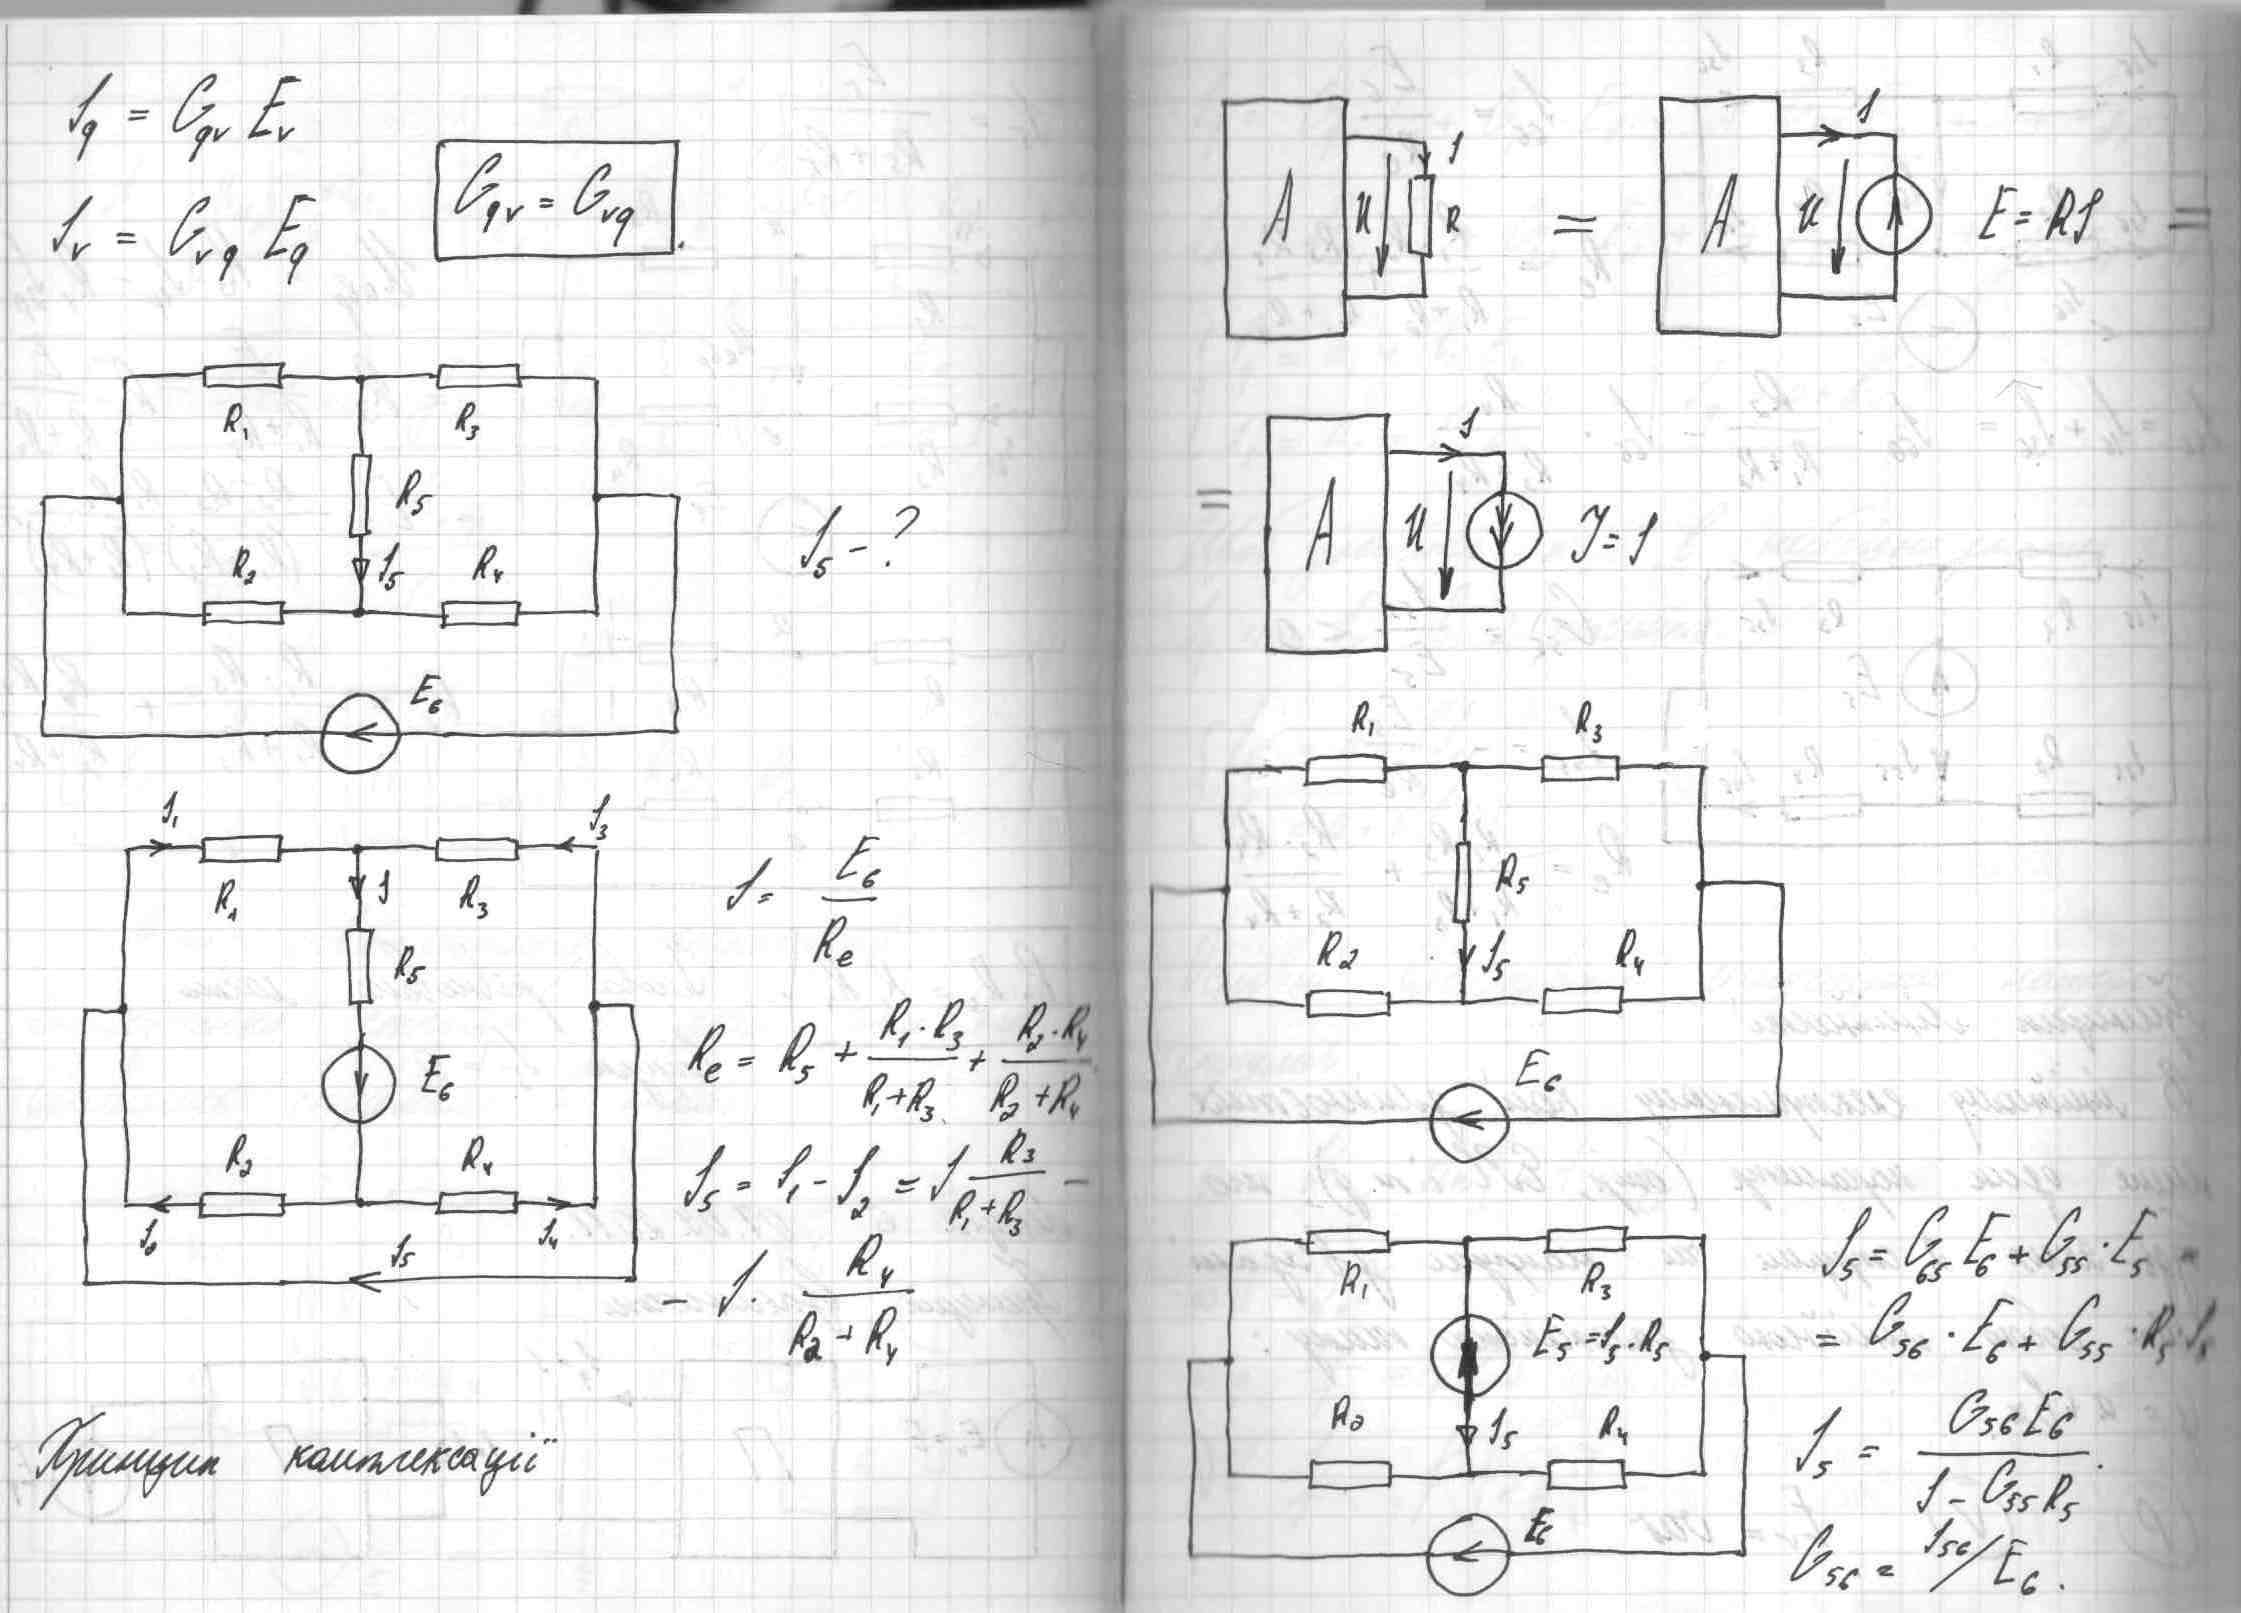 I_q = G_qv E_v
I_v = G_vq E_q
G_qv = G_vq.
R_1 R_3
R_5
I_5 - ?
R_2 I_5 R_4
E_6
I_1 I_3
R_1 I R_3
I = E_6 / R_e
R_5
E_6
R_e = R_5 + R_1·R_3 / R_1+R_3 + R_2·R_4 / R_2+R_4
R_2 R_4
I_2 I_5 I_4
I_5 = I_1 - I_2 = I R_3 / R_1+R_3 -
- I · R_4 / R_2+R_4
Принцип компенсації
A U I R = A U I E = RI =
= A U I J = I
R_1 R_3
R_5
R_2 I_5 R_4
E_6
R_1 R_3
E_5 = I_5·R_5
R_2 I_5 R_4
E_6
I_5 = G_65 E_6 + G_55·E_5 =
= G_56·E_6 + G_55·R_5·I_5
I_5 = G_56 E_6 / 1 - G_55 R_5.
G_56 = I_56 / E_6.